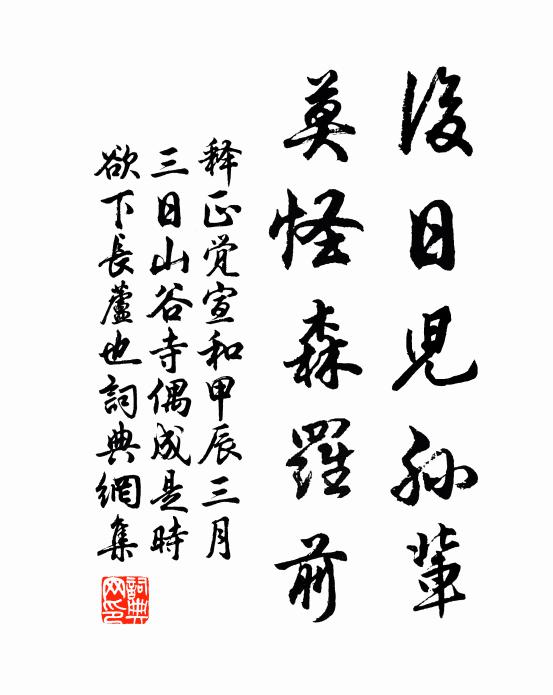 後日児孙輩
莫怪森羅前
释正觉宣和甲辰三月
三日山谷寺偶成是時
欲下長蘆也詞典網集
詞典
网印